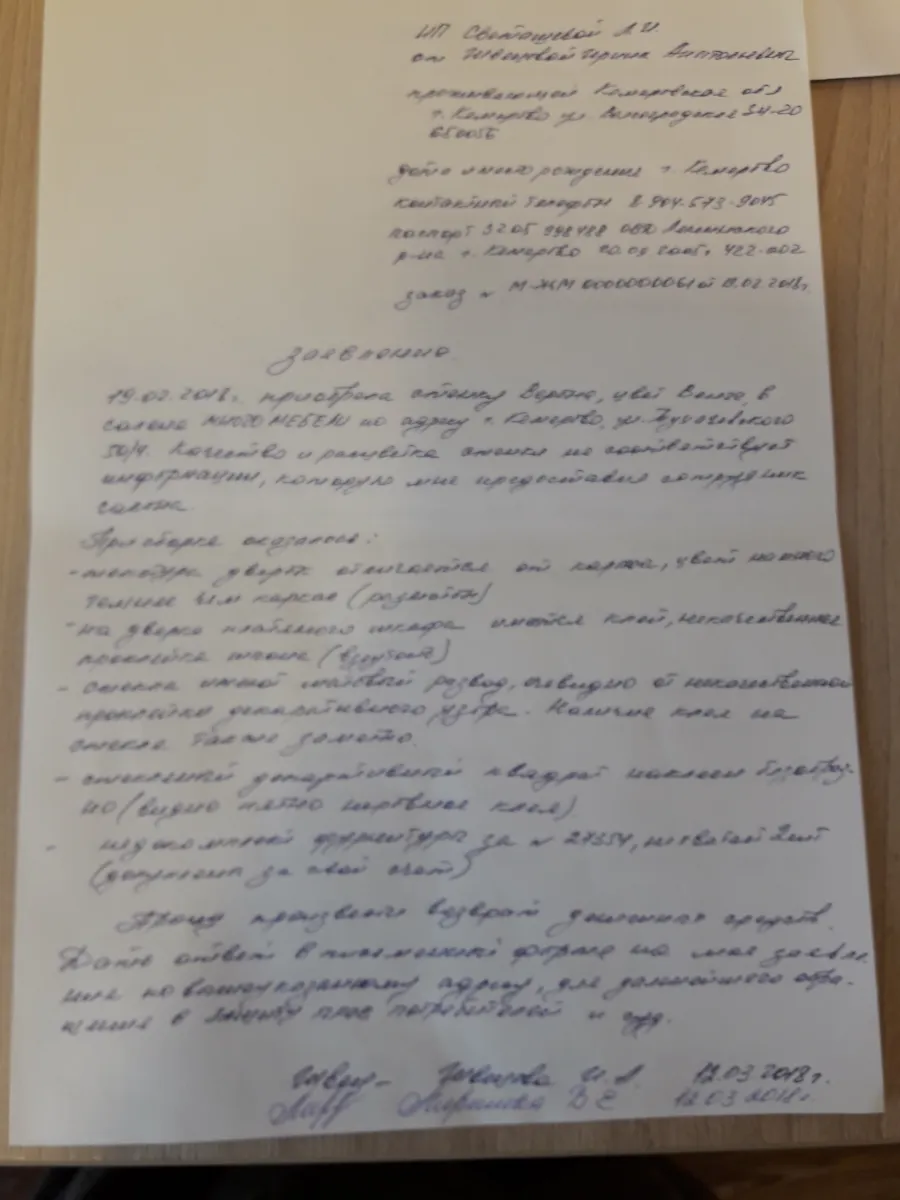 ИП Светашевой Л.И.
от Ирины Анатольевны
проживающей Кемеровская обл
г. Кемерово ул. 34-20
650056
дата и место рождения г. Кемерово
контактный телефон 8-904-573-9045
паспорт 3205 998488 ОВД Ленинского
р-на г. Кемерово 2005г 422-002
заказ № М-ЖМ 0000000061 от 19.02.2018г.
Заявление.
19.02.2018г. приобрела стенку цвет Венге, в
салоне МНОГО МЕБЕЛИ по адресу г. Кемерово, ул. Тухачевского
50/4. Качество и расцветка стенки не соответствует
информации, которую мне предоставил сотрудник
салона.
При сборке оказалось:
- текстура дверок отличается от каркаса, цвет намного
темнее чем каркас (разнотон)
- на дверке платяного шкафа имеется клей, некачественная
проклейка шпона (вздутие)
- стекла имеют матовый развод, очевидно от некачественной
проклейки декоративного узора. Наличие клея на
стекле также заметно.
- стеклянный декоративный квадрат наклеен безобраз-
но (видно пятно клея)
- недокомплект фурнитуры за № 27354, не хватает 2шт
(докупили за свой счет)
Прошу произвести возврат денежных средств.
Дать ответ в письменной форме на мое заявле-
ние по вышеуказанному адресу, для дальнейшего обра-
щения в защиту прав потребителей и суд.
И.А. 12.03.2018г.
В Е 12.03.2018г.